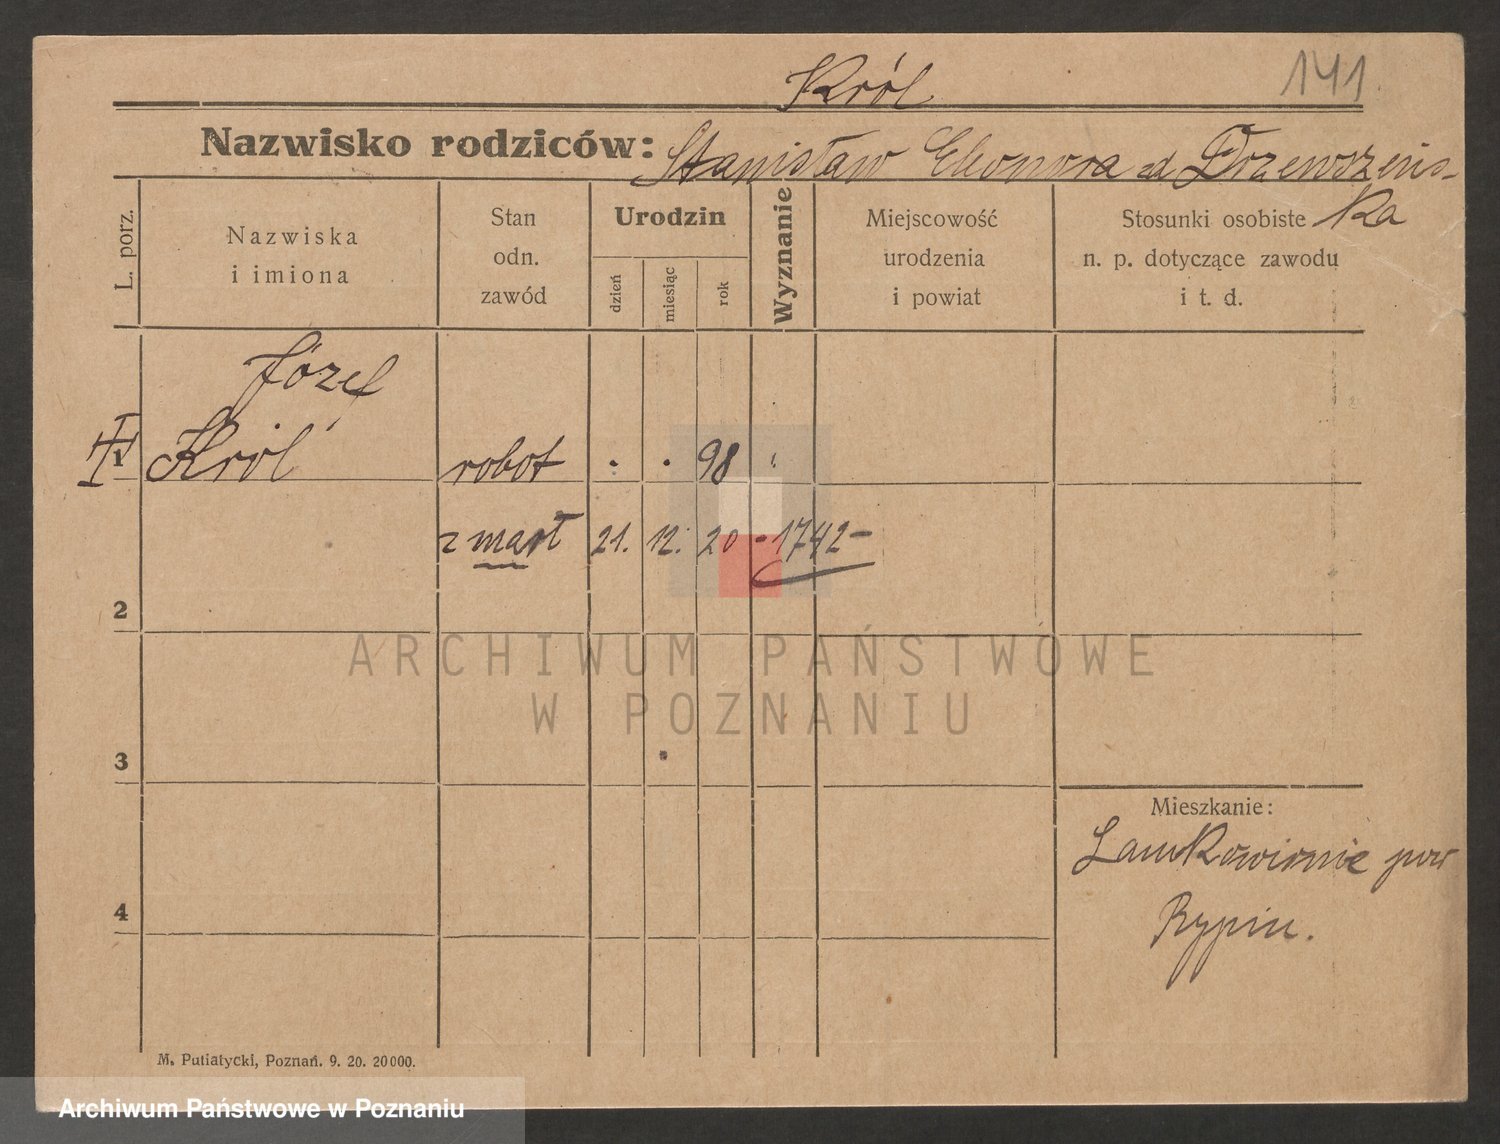 Król
141
Nazwisko rodziców: Stanisław Eleonora ad Drzewszens-
ka
L. porz.
Nazwiska
i imiona
Stan
odn.
zawód
Urodzin
dzień
miesiąc
rok
Wyznanie
Miejscowość
urodzenia
i powiat
Stosunki osobiste
n. p. dotyczące zawodu
i t. d.
Józef
1 Król robot . . 98
zmarł 21. 12. 20 -1742-
2
ARCHIWUM PAŃSTWOWE
W POZNANIU
3
Mieszkanie:
pow
4
Rypin.
M. Putiatycki, Poznań. 9. 20. 20000.
Archiwum Państwowe w Poznaniu